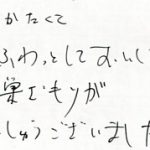 かたくて
ふわっとしておいし
巣ごもりが
しゅうございました